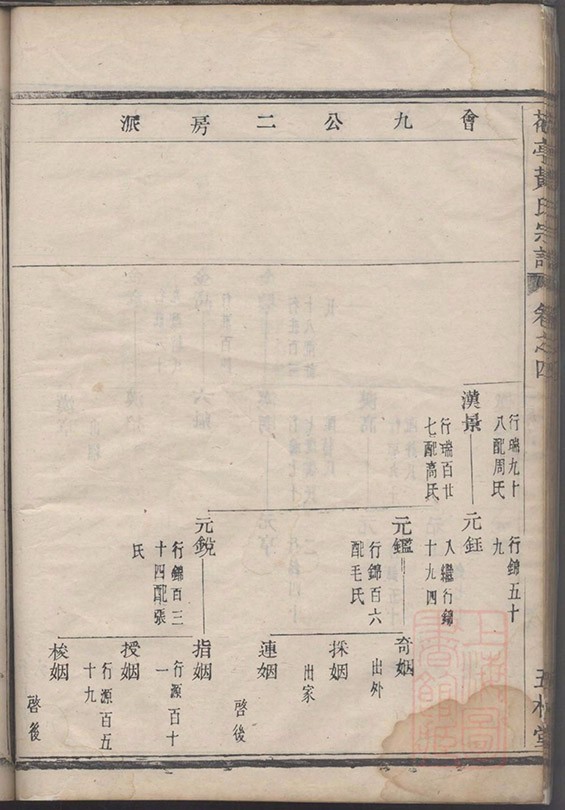 會九公二房派
黃氏宗譜 卷之四
行瑞九十
八配周氏
漢景
行瑞百廿
七配高氏
行錦五十
九
元鈺
入繼行錦
十九四
元鑑
行錦百六
配毛氏
元銳
行錦百三
十四配張
氏
奇姻
出外
採姻
出家
連姻
啓後
指姻
行源百十
一
授姻
行源百五
十九
梭姻
啓後